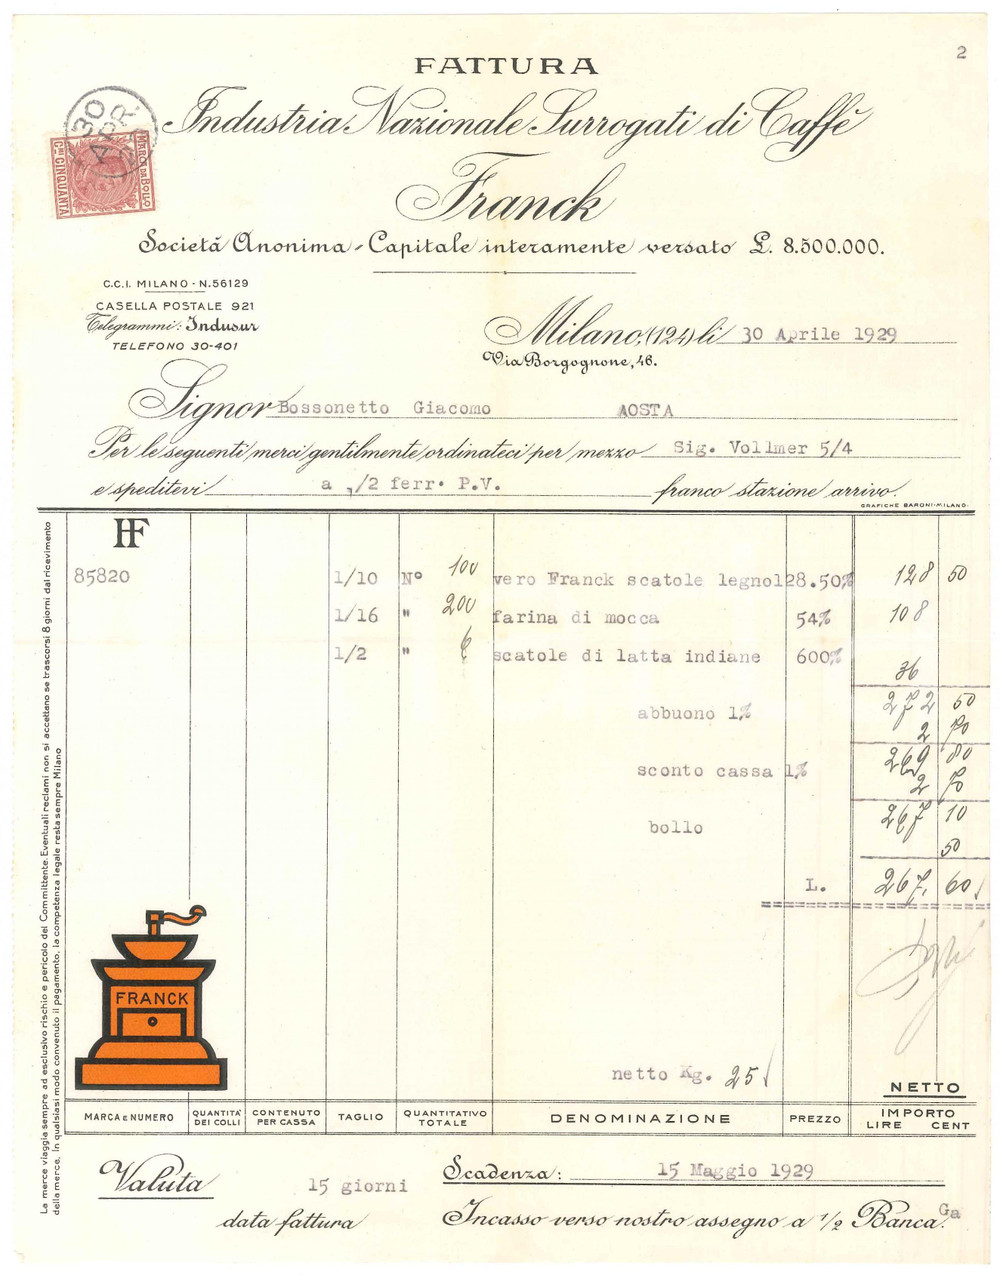 2
FATTURA
Industria Nazionale Surrogati di Caffè
Franck
Società Anonima - Capitale interamente versato £. 8.500.000.
30 APR.
MARCA DA BOLLO
CMI CINQUANTA
C.C.I. MILANO - N. 56129
CASELLA POSTALE 921
Telegrammi: Indusur
TELEFONO 30-401
Milano, (124) li 30 Aprile 1929
Via Borgognone, 46.
Signor Bossonetto Giacomo AOSTA
Per le seguenti merci gentilmente ordinateci per mezzo Sig. Vollmer 5/4
e speditevi a ,/2 ferr. P.V. franco stazione arrivo.
GRAFICHE BARONI-MILANO.
HF
85820 1/10 N° 100 vero Franck scatole legno 128.50% 128 50
1/16 " 200 farina di mocca 54% 108
1/2 " 6 scatole di latta indiane 600% 36
272 50
abbuono 1% 2 70
269 80
sconto cassa 1% 2 70
267 10
bollo 50
L. 267, 60
FRANCK
netto Kg. 25
NETTO
MARCA E NUMERO QUANTITA' DEI COLLI CONTENUTO PER CASSA TAGLIO QUANTITATIVO TOTALE DENOMINAZIONE PREZZO IMPORTO LIRE CENT
Valuta 15 giorni data fattura
Scadenza: 15 Maggio 1929
Incasso verso nostro assegno a 1/2 Banca. Ga
La merce viaggia sempre ad esclusivo rischio e pericolo del Committente. Eventuali reclami non si accettano se trascorsi 8 giorni dal ricevimento
della merce. In qualsiasi modo convenuto il pagamento, la competenza legale resta sempre Milano